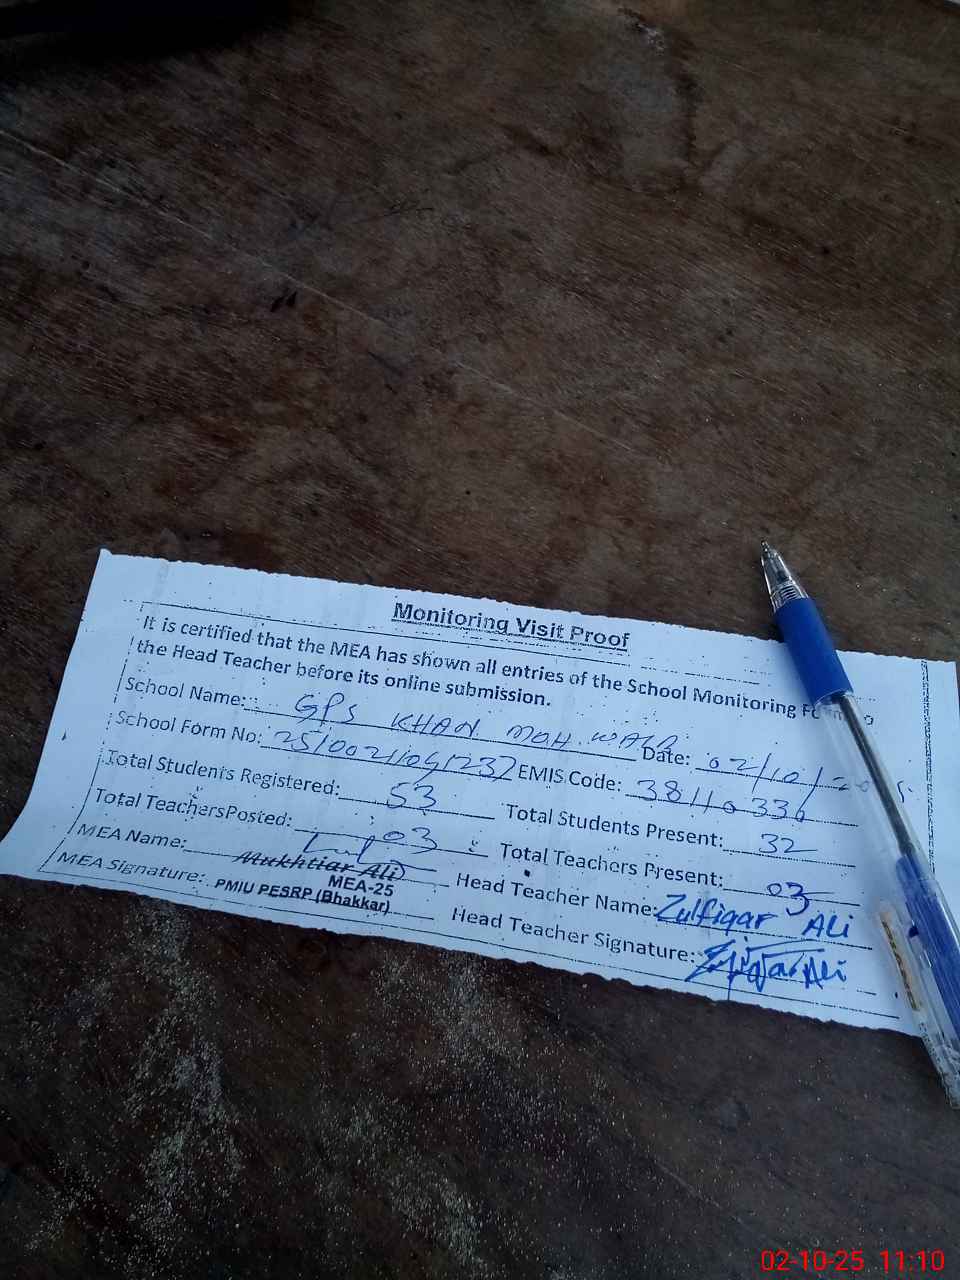 Monitoring Visit Proof
It is certified that the MEA has shown all entries of the School Monitoring
the Head Teacher before its online submission.
School Name: GPS KHAN MOH. WALA Date: 02/10/2025
School Form No: EMIS Code: 38110336
Total Students Registered: 53 Total Students Present: 32
Total TeachersPosted: 03 Total Teachers Present: 03
MEA Name: Mukhtiar Ali Head Teacher Name: Zulfiqar Ali
MEA-25
MEA Signature: PMIU PESRP (Bhakkar) Head Teacher Signature: Zulfiqar Ali
02-10-25 11:10